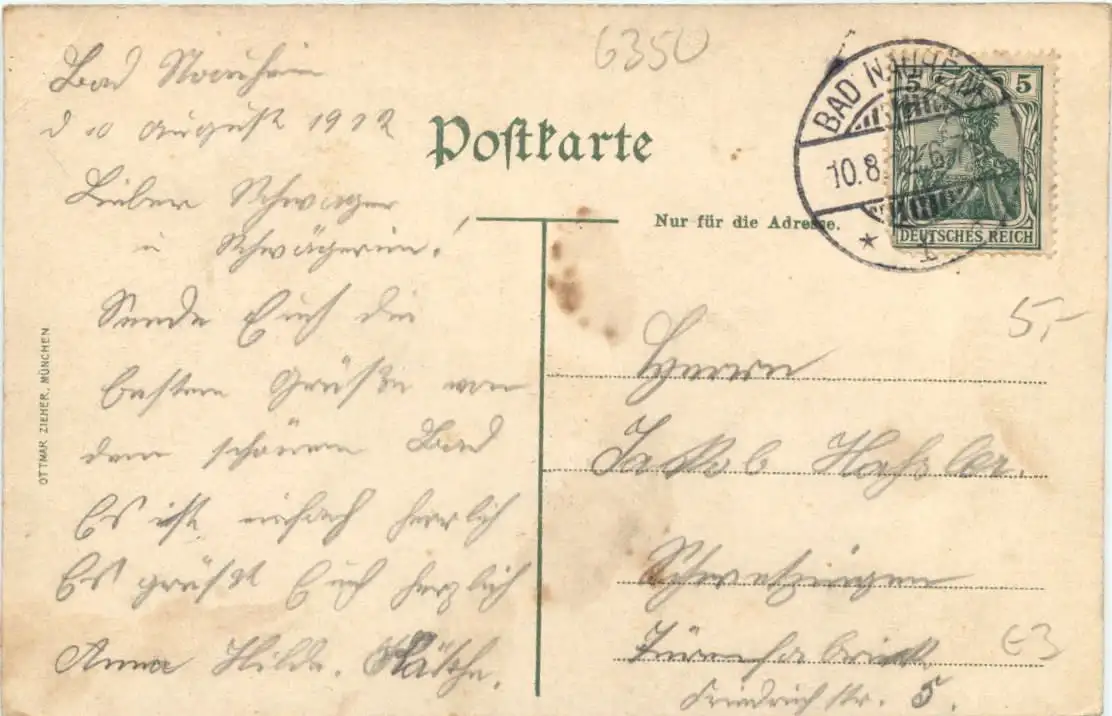 6350
Bad Nauheim
d 10 August 1912
Lieber Schwager
u Schwägerin!
Sende Euch die
besten Grüße von
dem schönen Bad
Es ist einfach herrlich
Es grüßt Euch herzlich
Anna Hilda. Käthe.
OTTMAR ZIEHER, MÜNCHEN
Postkarte
Nur für die Adresse.
BAD NAUHEIM
10.8.
5 5
DEUTSCHES REICH
5,-
Herrn
Jakob
Schwetzingen
Friedrichstr. 5.
E3